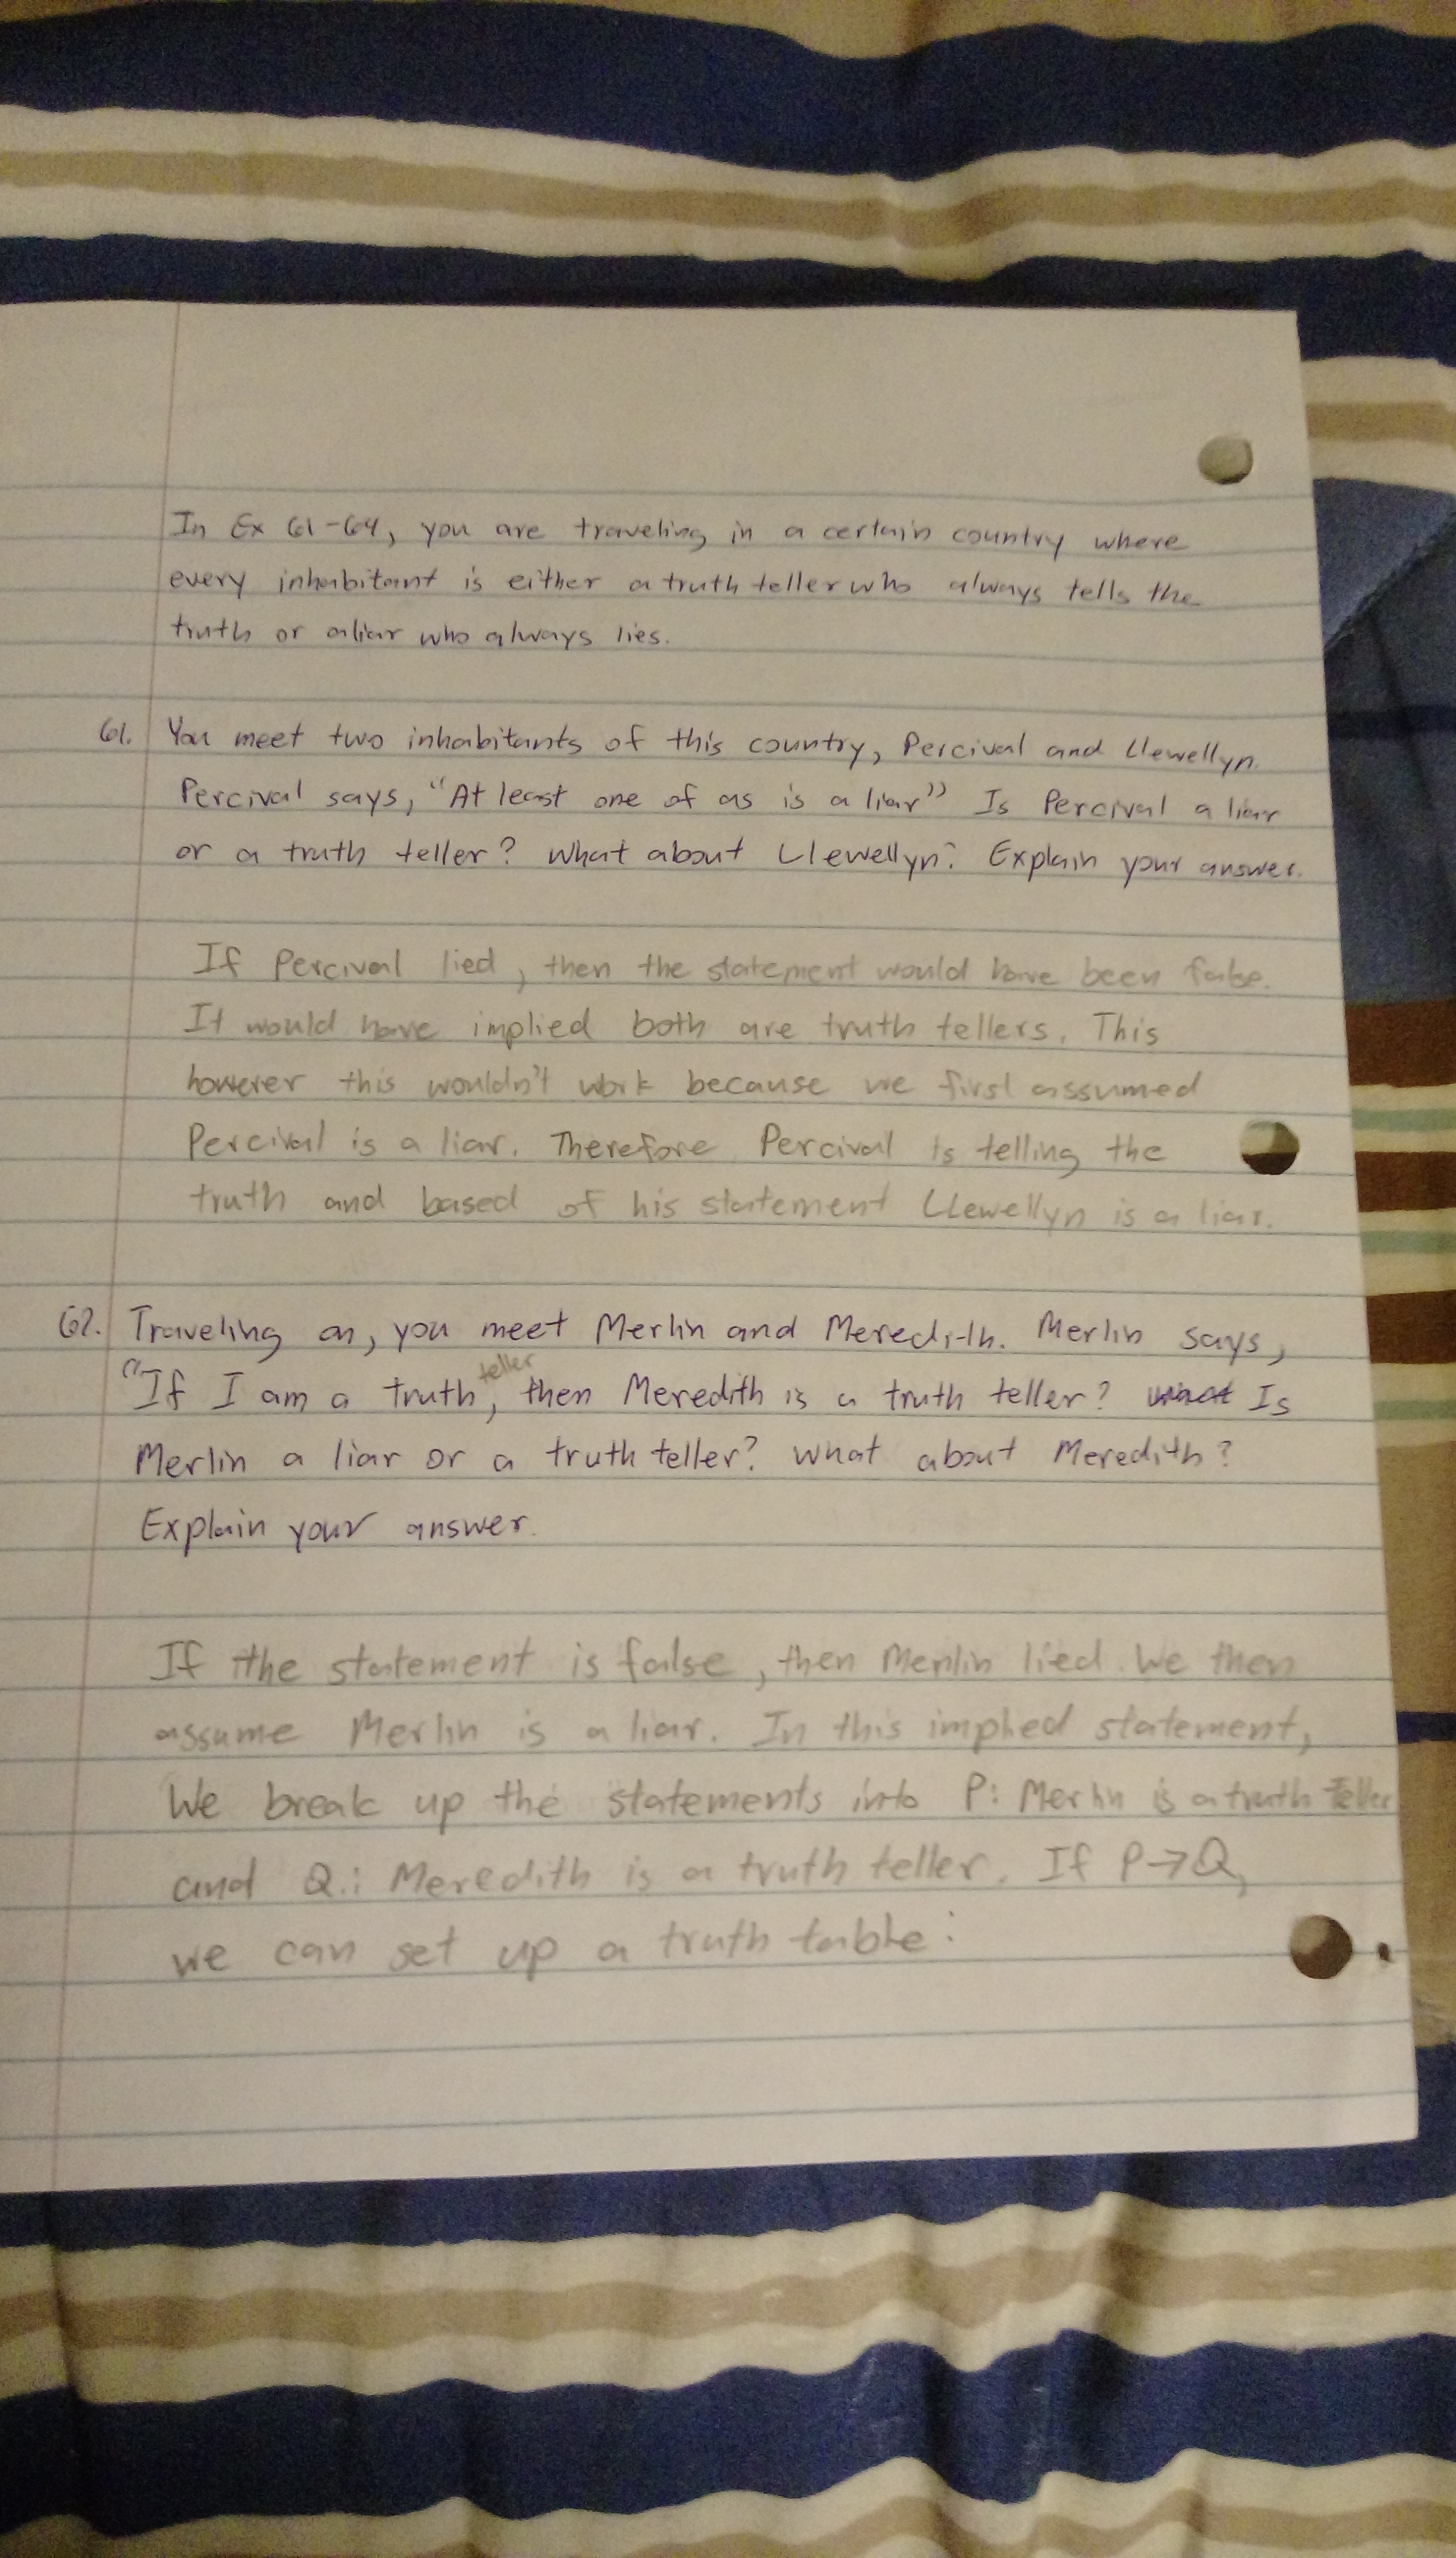 In Ex 61-64, you are traveling in a certain country where
every inhabitant is either a truth teller who always tells the
truth or a liar who always lies.
61. You meet two inhabitants of this country, Percival and Llewellyn.
Percival says, "At least one of as is a liar" Is Percival a liar
or a truth teller? What about Llewellyn? Explain your answer.
If Percival lied, then the statement would have been false.
It would have implied both are truth tellers. This
however this wouldn't work because we first assumed
Percival is a liar. Therefore Percival is telling the
truth and based of his statement Llewellyn is a liar.
62. Traveling on, you meet Merlin and Meredith. Merlin says,
"If I am a truth teller, then Meredith is a truth teller? What Is
Merlin a liar or a truth teller? What about Meredith?
Explain your answer.
If the statement is false, then Merlin lied. We then
assume Merlin is a liar. In this implied statement,
We break up the statements into P: Merlin is a truth teller
and Q: Meredith is a truth teller. If P→Q,
we can set up a truth table: